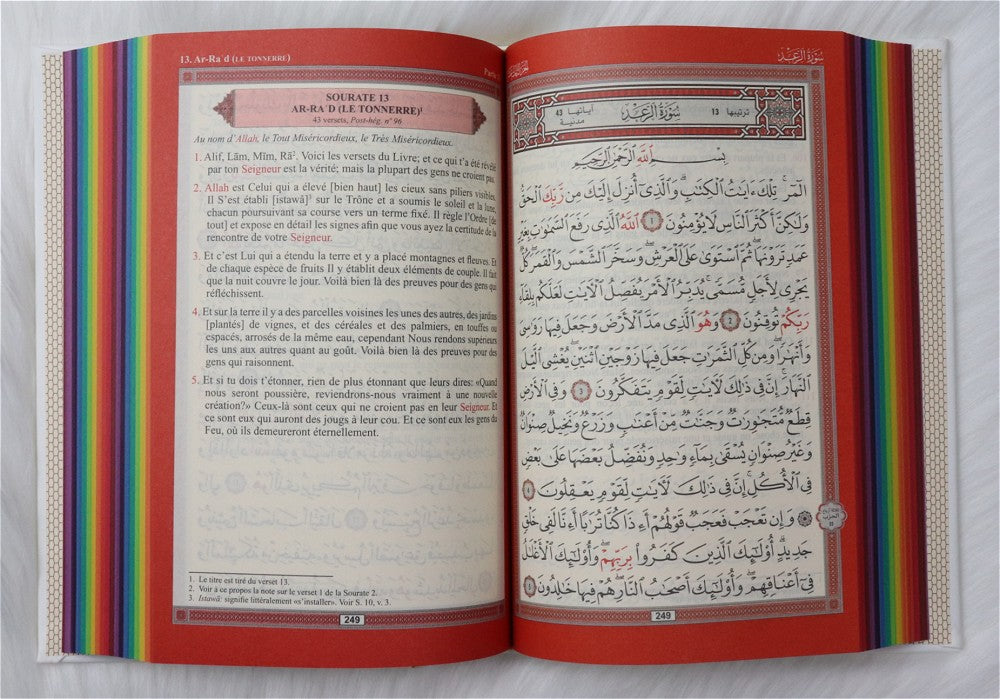 13. Ar-Ra`d (LE TONNERRE)
SOURATE 13
AR-RA`D (LE TONNERRE)¹
43 versets, Post-hég. n° 96
Au nom d'Allah, le Tout Miséricordieux, le Très Miséricordieux.
1. Alif, Lām, Mīm, Rā². Voici les versets du Livre; et ce qui t'a été révélé
par ton Seigneur est la vérité; mais la plupart des gens ne croient pas.
2. Allah est Celui qui a élevé [bien haut] les cieux sans piliers visibles.
Il S'est établi [istawâ]³ sur le Trône et a soumis le soleil et la lune,
chacun poursuivant sa course vers un terme fixé. Il règle l'Ordre [de
tout] et expose en détail les signes afin que vous ayez la certitude de la
rencontre de votre Seigneur.
3. Et c'est Lui qui a étendu la terre et y a placé montagnes et fleuves. Et
de chaque espèce de fruits Il y établit deux éléments de couple. Il fait
que la nuit couvre le jour. Voilà bien là des preuves pour des gens qui
réfléchissent.
4. Et sur la terre il y a des parcelles voisines les unes des autres, des jardins
[plantés] de vignes, et des céréales et des palmiers, en touffes ou
espacés, arrosés de la même eau, cependant Nous rendons supérieurs
les uns aux autres quant au goût. Voilà bien là des preuves pour des
gens qui raisonnent.
5. Et si tu dois t'étonner, rien de plus étonnant que leurs dires: «Quand
nous seront poussière, reviendrons-nous vraiment à une nouvelle
création?» Ceux-là sont ceux qui ne croient pas en leur Seigneur. Et
ce sont eux qui auront des jougs à leur cou. Et ce sont eux les gens du
Feu, où ils demeureront éternellement.
1. Le titre est tiré du verset 13.
2. Voir à ce propos la note sur le verset 1 de la Sourate 2.
3. Istawâ: signifie littéralement «s'installer». Voir S. 10, v. 3.
249
سُورَةُ الرَّعْدِ
ترتيبها 13 سُورَةُ الرَّعْدِ آياتها 43 مدنية
بِسْمِ ٱللَّهِ ٱلرَّحْمَٰنِ ٱلرَّحِيمِ
الٓمٓر ۚ تِلْكَ ءَايَٰتُ ٱلْكِتَٰبِ ۗ وَٱلَّذِىٓ أُنزِلَ إِلَيْكَ مِن رَّبِّكَ ٱلْحَقُّ
وَلَٰكِنَّ أَكْثَرَ ٱلنَّاسِ لَا يُؤْمِنُونَ ١ ٱللَّهُ ٱلَّذِى رَفَعَ ٱلسَّمَٰوَٰتِ بِغَيْرِ
عَمَدٍ تَرَوْنَهَا ۖ ثُمَّ ٱسْتَوَىٰ عَلَى ٱلْعَرْشِ ۖ وَسَخَّرَ ٱلشَّمْسَ وَٱلْقَمَرَ ۖ كُلٌّ
يَجْرِى لِأَجَلٍ مُّسَمًّى ۚ يُدَبِّرُ ٱلْأَمْرَ يُفَصِّلُ ٱلْءَايَٰتِ لَعَلَّكُم بِلِقَآءِ
رَبِّكُمْ تُوقِنُونَ ٢ وَهُوَ ٱلَّذِى مَدَّ ٱلْأَرْضَ وَجَعَلَ فِيهَا رَوَٰسِىَ
وَأَنْهَٰرًا ۖ وَمِن كُلِّ ٱلثَّمَرَٰتِ جَعَلَ فِيهَا زَوْجَيْنِ ٱثْنَيْنِ ۖ يُغْشِى ٱلَّيْلَ
ٱلنَّهَارَ ۚ إِنَّ فِى ذَٰلِكَ لَءَايَٰتٍ لِّقَوْمٍ يَتَفَكَّرُونَ ٣ وَفِى ٱلْأَرْضِ
قِطَعٌ مُّتَجَٰوِرَٰتٌ وَجَنَّٰتٌ مِّنْ أَعْنَٰبٍ وَزَرْعٌ وَنَخِيلٌ صِنْوَانٌ
وَغَيْرُ صِنْوَانٍ يُسْقَىٰ بِمَآءٍ وَٰحِدٍ وَنُفَضِّلُ بَعْضَهَا عَلَىٰ بَعْضٍ
فِى ٱلْأُكُلِ ۚ إِنَّ فِى ذَٰلِكَ لَءَايَٰتٍ لِّقَوْمٍ يَعْقِلُونَ ٤
۞ وَإِن تَعْجَبْ فَعَجَبٌ قَوْلُهُمْ أَءِذَا كُنَّا تُرَٰبًا أَءِنَّا لَفِى خَلْقٍ
جَدِيدٍ ۗ أُو۟لَٰٓئِكَ ٱلَّذِينَ كَفَرُوا۟ بِرَبِّهِمْ ۖ وَأُو۟لَٰٓئِكَ ٱلْأَغْلَٰلُ
فِىٓ أَعْنَاقِهِمْ ۖ وَأُو۟لَٰٓئِكَ أَصْحَٰبُ ٱلنَّارِ ۖ هُمْ فِيهَا خَٰلِدُونَ ٥
249